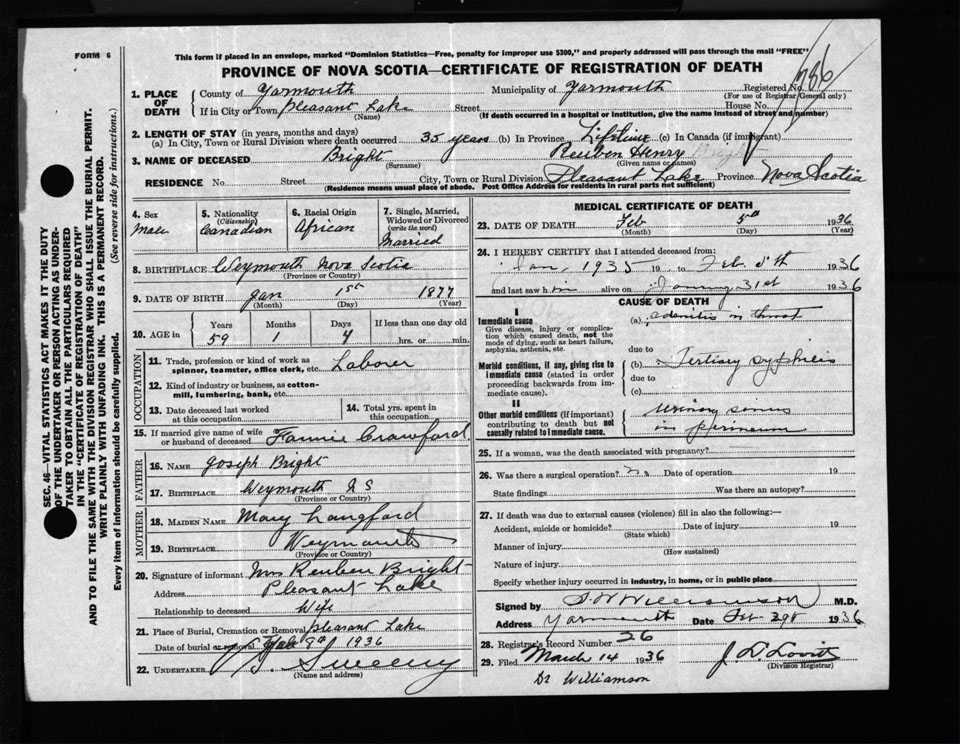 FORM 6
This form if placed in an envelope, marked "Dominion Statistics—Free, penalty for improper use $300," and properly addressed will pass through the mail "FREE"
PROVINCE OF NOVA SCOTIA—CERTIFICATE OF REGISTRATION OF DEATH
1. PLACE OF DEATH
County of Yarmouth Municipality of Yarmouth Registered No.
(For use of Registrar General only)
If in City or Town Pleasant Lake Street House No.
(Name) (If death occurred in a hospital or institution, give the name instead of street and number)
2. LENGTH OF STAY (in years, months and days)
(a) In City, Town or Rural Division where death occurred 35 years (b) In Province Lifetime (c) In Canada (if immigrant)
3. NAME OF DECEASED Bright Reuben Henry
(Surname) (Given name or names)
RESIDENCE No. Street City, Town or Rural Division Pleasant Lake Province Nova Scotia
(Residence means usual place of abode. Post Office Address for residents in rural parts not sufficient)
SEC. 46—VITAL STATISTICS ACT MAKES IT THE DUTY
OF THE UNDERTAKER OR PERSON ACTING AS UNDER-
TAKER TO OBTAIN ALL THE PARTICULARS REQUIRED
IN THE "CERTIFICATE OF REGISTRATION OF DEATH"
AND TO FILE THE SAME WITH THE DIVISION REGISTRAR WHO SHALL ISSUE THE BURIAL PERMIT.
WRITE PLAINLY WITH UNFADING INK. THIS IS A PERMANENT RECORD.
Every item of information should be carefully supplied. (See reverse side for instructions.)
4. Sex Male
5. Nationality (Citizenship) Canadian
6. Racial Origin African
7. Single, Married, Widowed or Divorced (write the word) Married
8. BIRTHPLACE Weymouth Nova Scotia
(Province or Country)
9. DATE OF BIRTH Jan 1st 1877
(Month) (Day) (Year)
10. AGE in Years 59 Months 1 Days 4 If less than one day old hrs. or min.
OCCUPATION
11. Trade, profession or kind of work as spinner, teamster, office clerk, etc. Laborer
12. Kind of industry or business, as cotton-mill, lumbering, bank, etc.
13. Date deceased last worked at this occupation
14. Total yrs. spent in this occupation
15. If married give name of wife or husband of deceased Fannie Crawford
FATHER
16. NAME Joseph Bright
17. BIRTHPLACE Weymouth N S
(Province or Country)
MOTHER
18. MAIDEN NAME Mary Langford
19. BIRTHPLACE Weymouth
(Province or Country)
20. Signature of informant Mrs Reuben Bright
Address Pleasant Lake
Relationship to deceased Wife
21. Place of Burial, Cremation or Removal Pleasant Lake
Date of burial or removal Feb 9th 1936
22. UNDERTAKER Sweeny
(Name and address)
MEDICAL CERTIFICATE OF DEATH
23. DATE OF DEATH Feb 5th 1936
(Month) (Day) (Year)
24. I HEREBY CERTIFY that I attended deceased from:
Jan, 1935 19 to Feb. 5th 1936
and last saw him alive on January 31st 1936
CAUSE OF DEATH
I
Immediate cause
Give disease, injury or complication which caused death, not the mode of dying, such as heart failure, asphyxia, asthenia, etc.
(a) adenitis in throat
due to
Morbid conditions, if any, giving rise to immediate cause (stated in order proceeding backwards from immediate cause).
(b) Tertiary syphilis
due to
(c)
II
Other morbid conditions (if important) contributing to death but not causally related to immediate cause.
urinary sinus
in perineum
25. If a woman, was the death associated with pregnancy?
26. Was there a surgical operation? No Date of operation 19
State findings Was there an autopsy?
27. If death was due to external causes (violence) fill in also the following:—
Accident, suicide or homicide? Date of injury 19
(State which)
Manner of injury
(How sustained)
Nature of injury
Specify whether injury occurred in industry, in home, or in public place
Signed by S. W Williamson M.D.
Address Yarmouth Date Feb 1936
28. Registrar's Record Number 26
29. Filed March 14 1936 J. D. Lovitt
(Division Registrar)
Dr Williamson